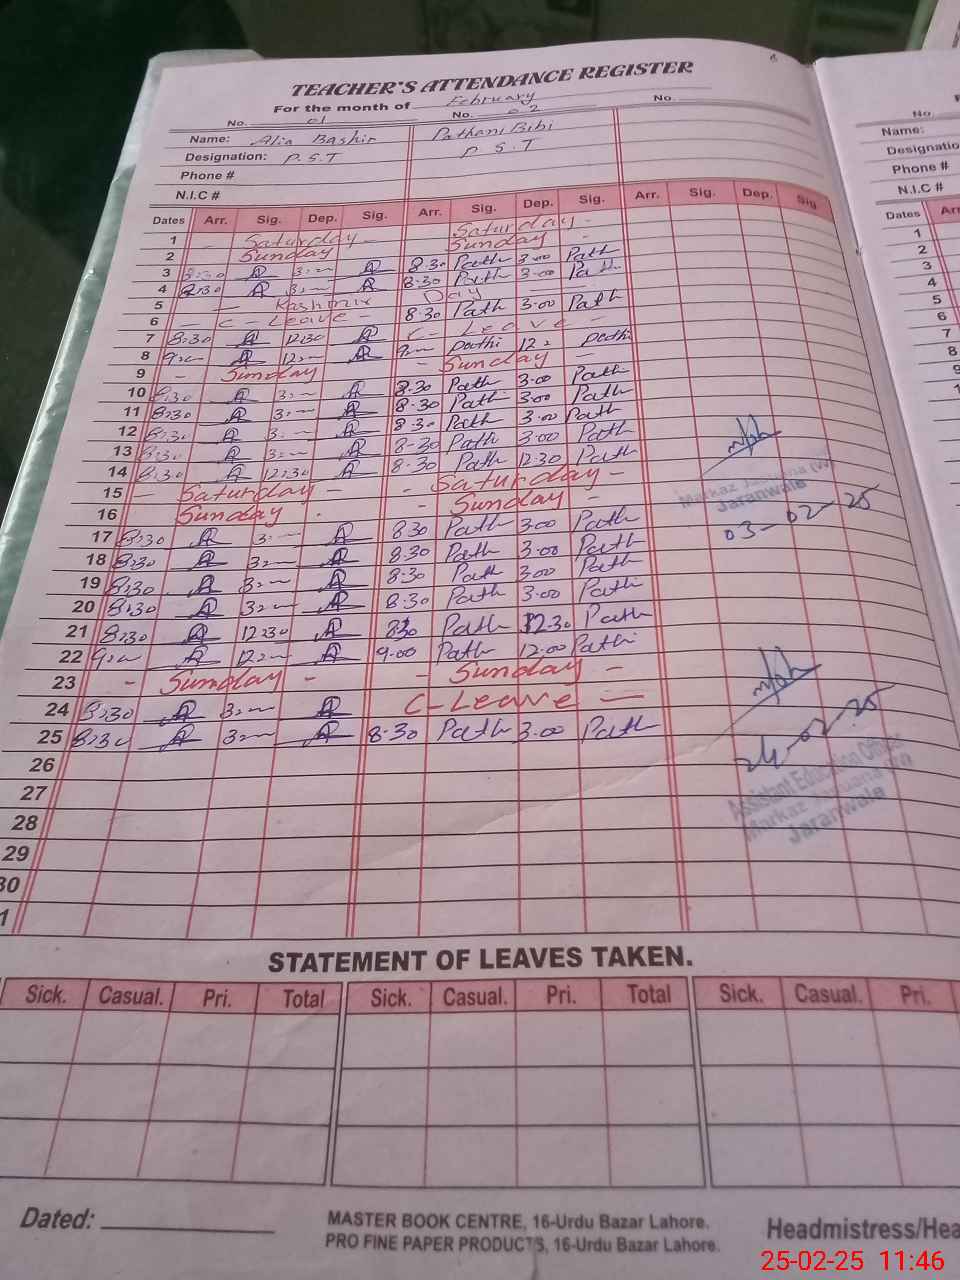 TEACHER'S ATTENDANCE REGISTER
For the month of February
No. 01 No. 02 No.
Name: Alia Bashir Pathani Bibi
Designation: P.S.T P.S.T
Phone #
N.I.C #
Dates Arr. Sig. Dep. Sig. Arr. Sig. Dep. Sig. Arr. Sig. Dep. Sig
1 - Saturday - Saturday -
2 Sunday Sunday -
3 8:30 3:00 8.30 Path 3.00 Path
4 8:30 3:00 8.30 Path 3.00 Path
5 - Kashmir Day
6 - C-Leave - 8.30 Path 3.00 Path
7 8:30 12:30 C-Leave -
8 9:00 12:00 9:00 Pathi 12:0 Pathi
9 - Sunday - Sunday -
10 8:30 3:00 8.30 Path 3.00 Path
11 8:30 3:00 8.30 Path 3.00 Path
12 8:30 3:00 8.30 Path 3.00 Path
13 8:30 3:00 8-30 Path 3.00 Path
14 8:30 12:30 8.30 Path 12.30 Path
15 - Saturday - - Saturday -
16 Sunday - Sunday -
17 8:30 3:00 830 Path 3.00 Path
18 8:30 3:00 8.30 Path 3.00 Path
19 8:30 3:00 8:30 Path 3.00 Path
20 8:30 3:00 8.30 Path 3.00 Path
21 8:30 12:30 830 Path 12.30 Path
22 9:00 12:00 9.00 Path 12.00 Pathi
23 - Sunday - - Sunday -
24 8:30 3:00 C-Leave -
25 8:30 3:00 8.30 Path 3.00 Path
26
27
28
29
30
1
Markaz Jassuana (W)
Jaranwala
03-02-25
24-02-25
Assistant Education Officer
Markaz Jassuana (W)
Jaranwala
STATEMENT OF LEAVES TAKEN.
Sick. Casual. Pri. Total Sick. Casual. Pri. Total Sick. Casual. Pri.
Dated:
MASTER BOOK CENTRE, 16-Urdu Bazar Lahore.
PRO FINE PAPER PRODUCTS, 16-Urdu Bazar Lahore.
Headmistress/Hea
No
Name:
Designatio
Phone #
N.I.C #
Dates Arr
1
2
3
4
5
6
7
8
9
10
11
12
13
14
25-02-25 11:46